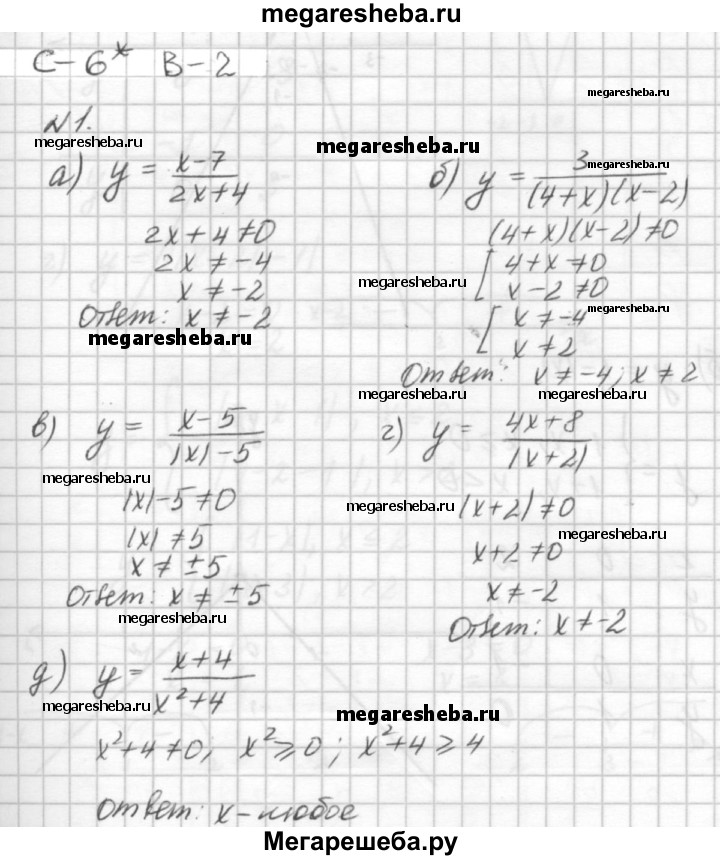 megaresheba.ru
С-6* В-2
megaresheba.ru
N1.
megaresheba.ru
megaresheba.ru
а) y = (x-7)/(2x+4)
2x+4≠0
2x ≠ -4
x ≠ -2
Ответ: x ≠ -2
megaresheba.ru
б) y = 3/((4+x)(x-2))
megaresheba.ru
(4+x)(x-2)≠0
[ 4+x ≠0
x-2 ≠0
megaresheba.ru
megaresheba.ru
[ x ≠ -4
x ≠ 2
Ответ: x ≠ -4; x ≠ 2
megaresheba.ru
megaresheba.ru
в) y = (x-5)/(|x|-5)
megaresheba.ru
|x|-5≠0
|x| ≠5
x ≠ ±5
Ответ: x ≠ ±5
megaresheba.ru
г) y = (4x+8)/|x+2|
megaresheba.ru
|x+2| ≠0
megaresheba.ru
x+2 ≠0
x ≠ -2
Ответ: x ≠ -2
д) y = (x+4)/(x²+4)
megaresheba.ru
megaresheba.ru
x²+4≠0; x²⩾0; x²+4⩾4
Ответ: x-любое
Мегарешеба.ру